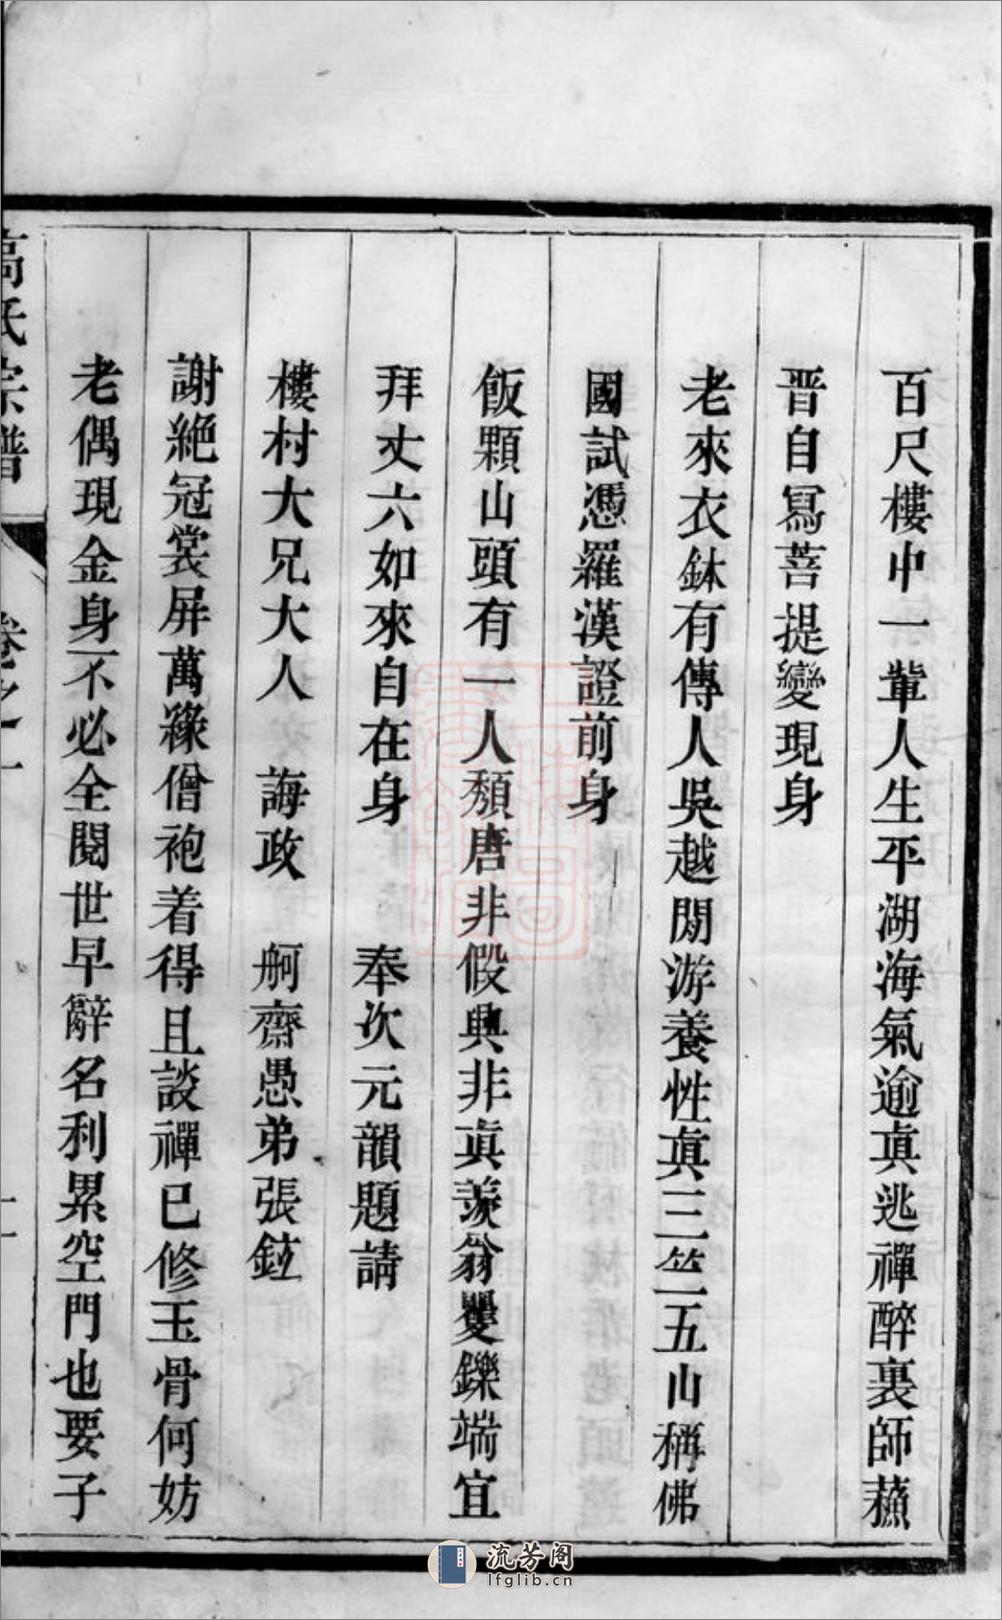 百尺樓中一輩人生平湖海氣逾眞逃禪醉裏師蘓
晋自寫菩提變現身
老來衣鉢有傳人吳越閒游養性眞三竺五山稱佛
國試憑羅漢證前身
飯顆山頭有一人頽唐非假興非眞羨翁矍鑠端宜
拜丈六如來自在身　　奉次元韻題請
樓村大兄大人　誨政　舸齋愚弟張鉉
謝絶冠裳屏萬緣僧袍着得且談禪已修玉骨何妨
老偶現金身不必全閱世早辭名利累空門也要子
高氏宗譜　卷之一
流芳阁
lfglib.cn